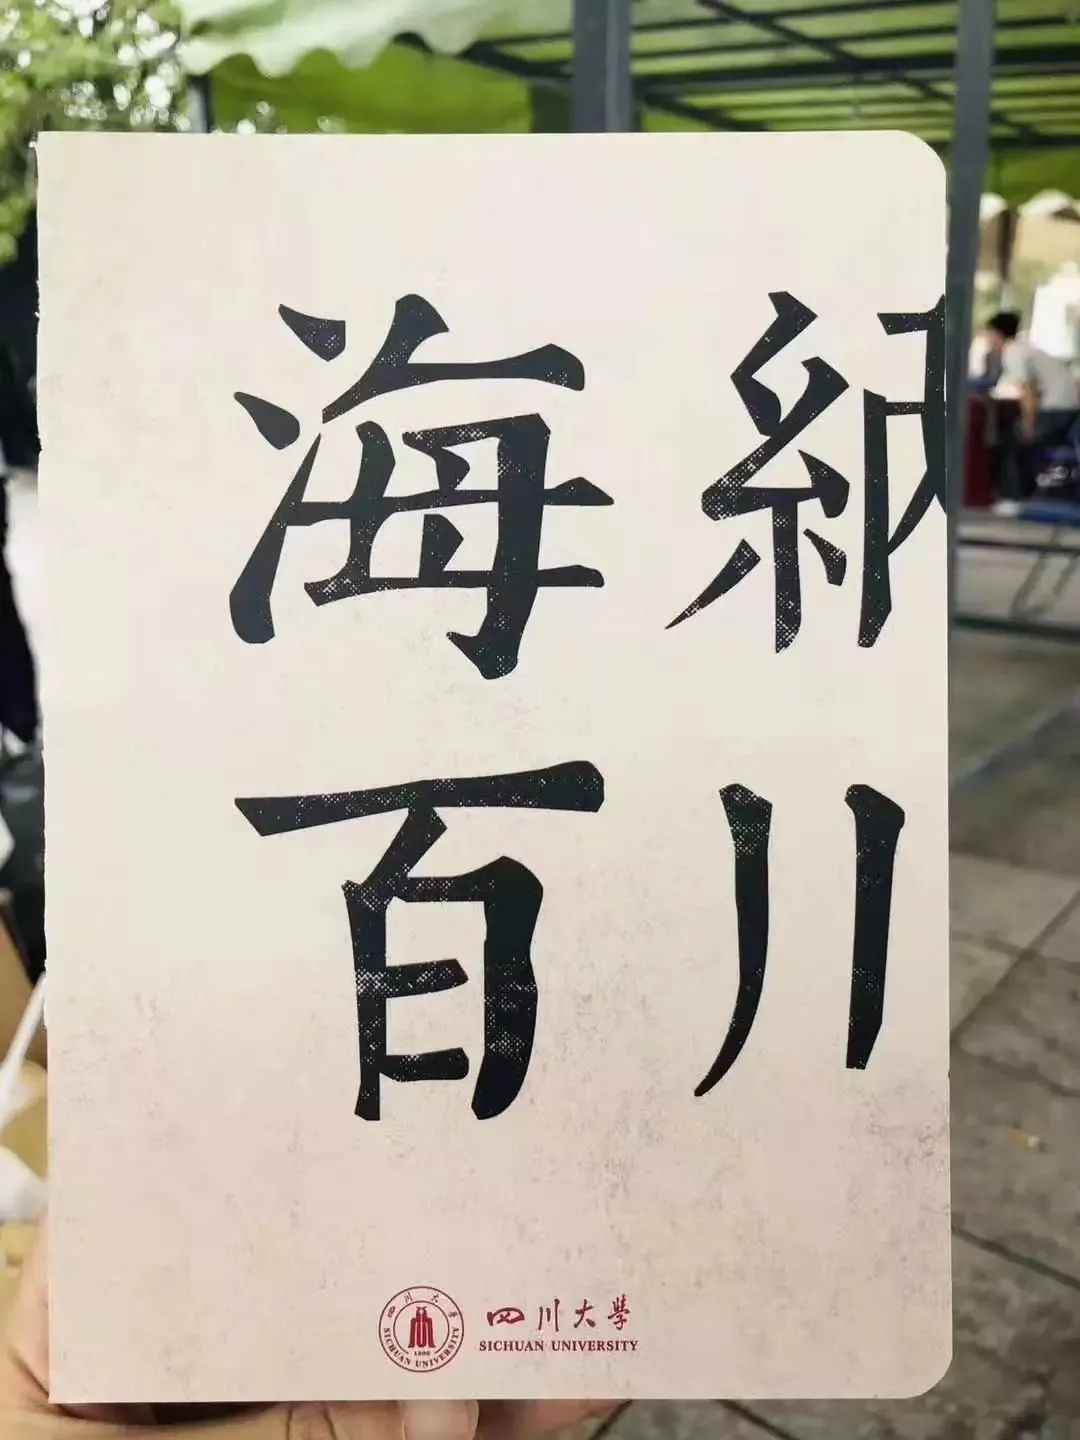 海納
百川
四川大學
1896
SICHUAN UNIVERSITY
四川大學
SICHUAN UNIVERSITY